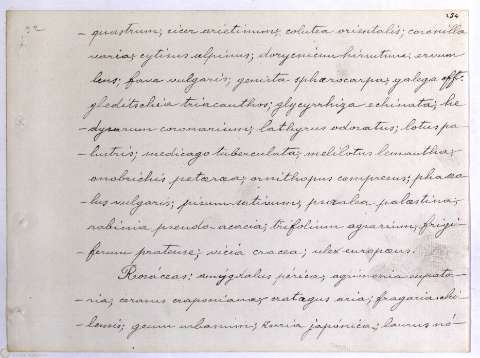 254
quastrum; cicer arietinum; colutea orientalis; coronilla
varia; cytisus alpinus; dorycnium hirsutum; ervum
lens; fava vulgaris; genista sphærocarpa; galega off.
gleditschia triacanthos; glycyrrhiza echinata; he-
dysarum coronarium; lathyrus odoratus; lotus pa-
lustris; medicago tuberculata; melilotus
onobrichis petræa; ornithopus compresus; phaseo-
lus vulgaris; pisum sativum; psoralea palæstina;
robinia pseudo-acacia; trifolium agrarium,
ferum pratense; vicia cracca; ulex europœus.
Rosáceas: amygdalus persica; agrimonia eupato-
ria; cerasus cratægus aria; fragaria chi-
lensis; geum urbanum; kerria japónica; laurus